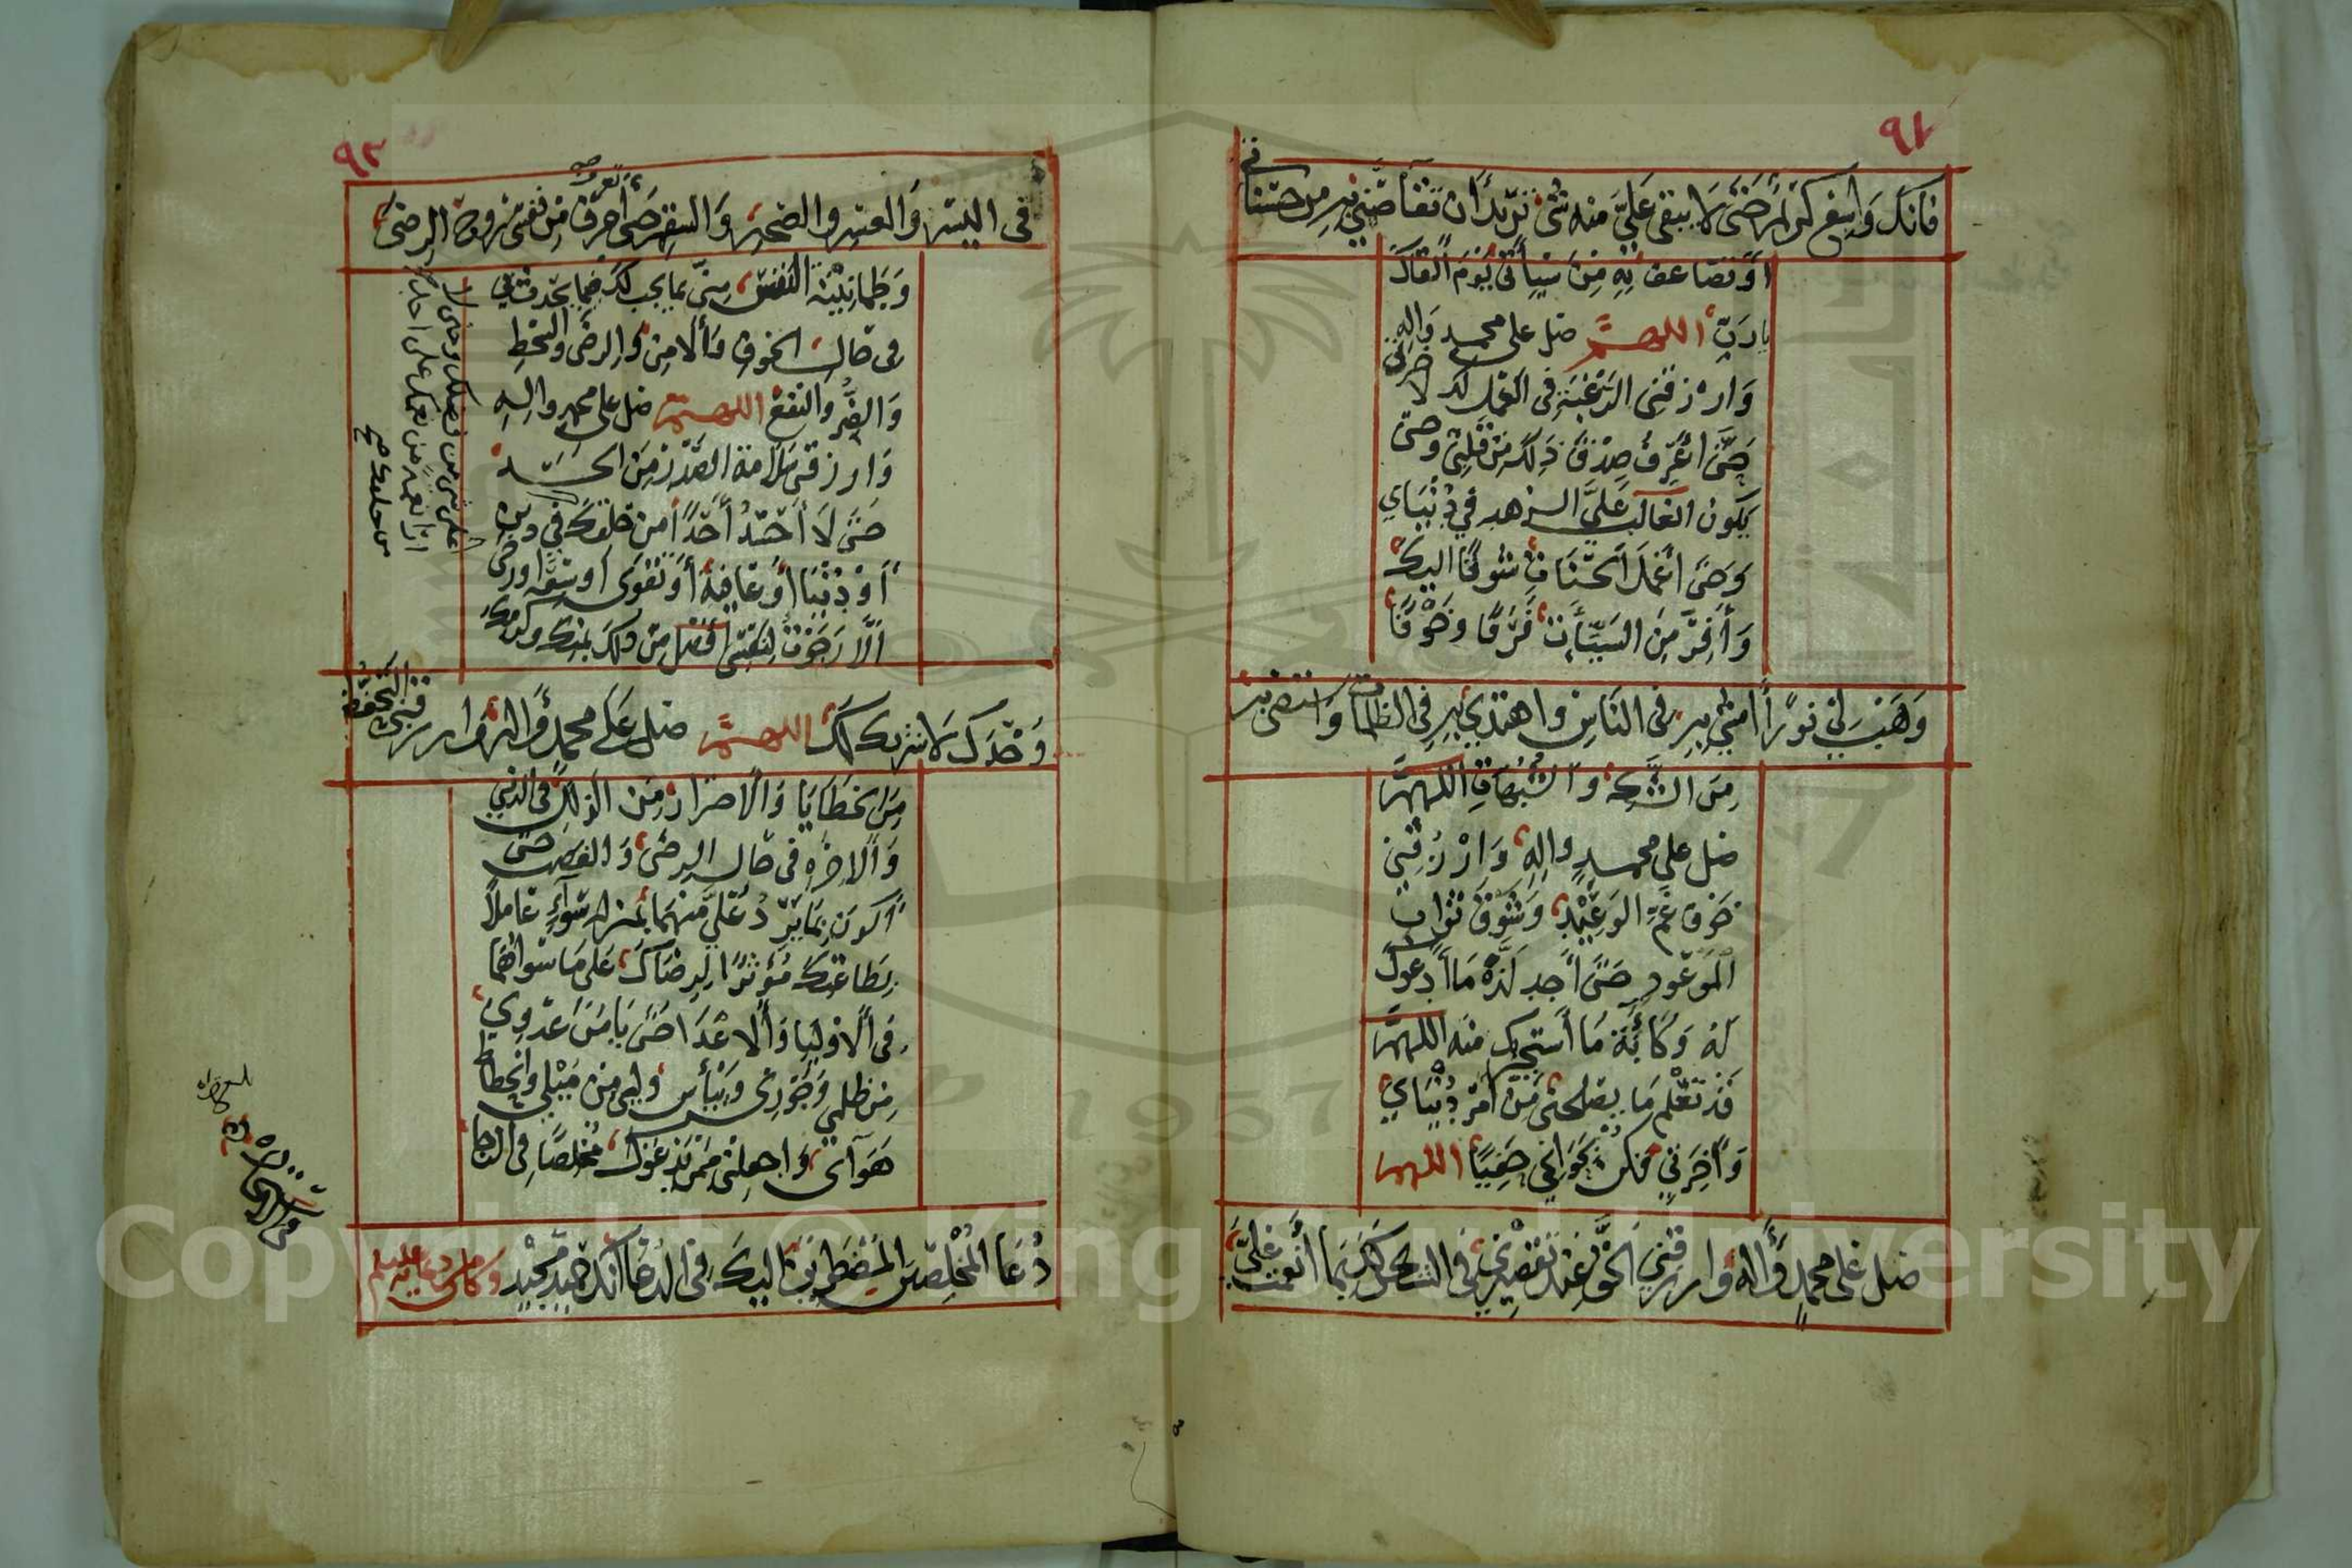 ٩٢
فانك واسع كريم حتى لا يبقى علي منه شئ تريد ان تقاصني به من حسناتي
او تضاعف به من سيأتي يوم القاك
يا رب اللهم صل على محمد واله
وارزقني الرغبة في العمل لك لاخرتي
حتى اعرف صدق ذلك من قلبي وحتى
يكون الغالب علي الزهد في دنياي
وحتى اعمل الحسنات شوقا اليك
وأفر من السيئات فرقا وخوفا
وهب لي نورا امشي به في الناس واهتدي به في الظلمات واستضئ به
من الشك والشبهات اللهم
صل على محمد واله وارزقني
خوف غم الوعيد وشوق ثواب
الموعود حتى اجد لذة ما ادعوك
له وكابة ما استجير منه اللهم
قد تعلم ما يصلحني من امر دنياي
وآخرتي فكن بحوائجي حفيا اللهم
صل على محمد واله وارزقني الحق عند تقصيري في الشكر لك بما أنعمت علي
٩٣
في اليسر والعسر والصحة والسقم حتى أتعرف من نفسي روح الرضى
وطمانينة النفس مني بما يجب لك فيما يحدث في
في حال الخوف والامن والرضى والسخط
والضر والنفع اللهم صل على محمد واله
وارزقني سلامة الصدر من الحسد
حتى لا أحسد أحدا من خلقك في دين
او دنيا او عافية او تقوى او سعة او رخى
الا رجوت لنفسي أفضل من ذلك بمنك وكرمك
وحدك لا شريك لك اللهم صل على محمد واله وارزقني التحفظ
من الخطايا والاحتراز من الزلل في الدنيا
والاخرة في حال الرضى والغضب حتى
اكون بما يرد علي منهما بمنزلة سوآء عاملا
بطاعتك مؤثرا لرضاك على ما سواهما
في الاوليا والاعدا حتى يامن عدوي
من ظلمي وجوري وييأس وليي من ميلي وانحطاط
هوآي واجعلني ممن يدعوك مخلصا في الرخا
دعا المخلصين المضطرين اليك في الدعا انك حميد مجيد وكان من دعائه عليه السلم
على شي من فضلك وحتى لا
ارى نعمة من نعمك على احد من
خلقك
Copyright © King Saud University
1957